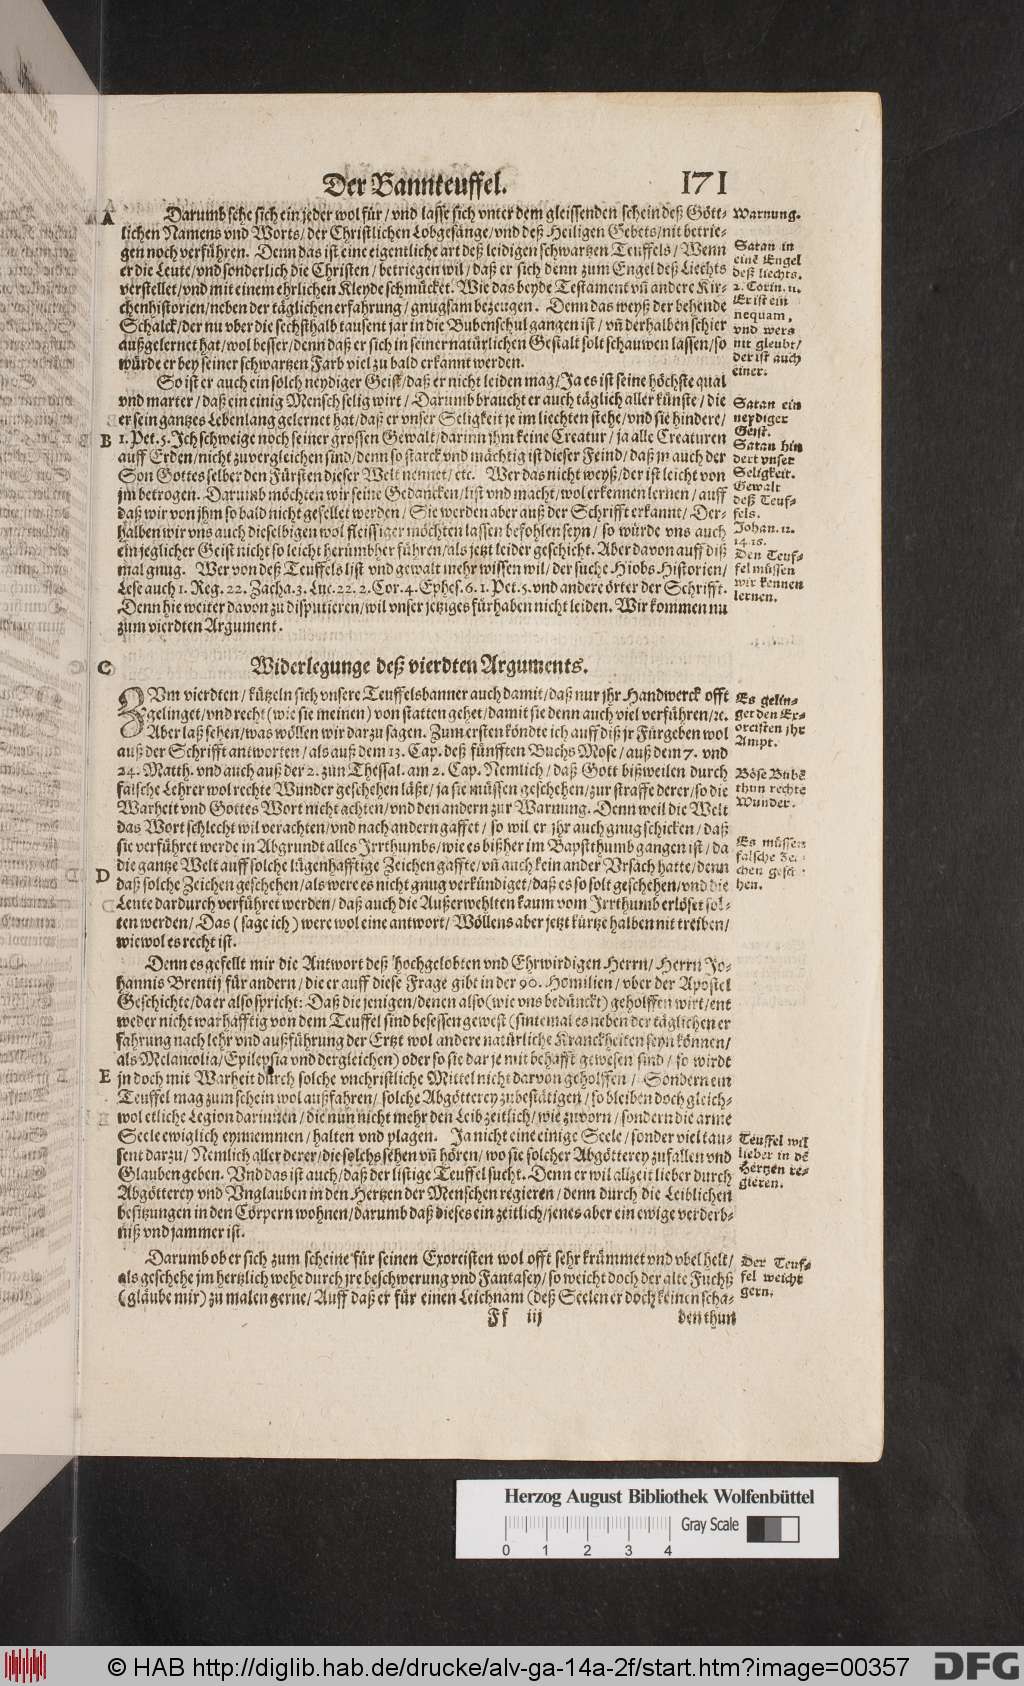 Der Bannteuffel.
171
A
Darumb sehe sich ein jeder wol für / vnd lasse sich vnter dem gleissenden schein deß Gött-
lichen Namens vnd Worts / der Christlichen Lobgesänge / vnd deß Heiligen Gebets / nit betrie-
gen noch verführen. Denn das ist eine eigentliche art deß leidigen schwartzen Teuffels / Wenn
er die Leute / vnd sonderlich die Christen / betriegen wil / daß er sich denn zum Engel deß Liechts
verstellet / vnd mit einem ehrlichen Kleyde schmücket. Wie das beyde Testament vñ andere Kir-
chenhistorien / neben der täglichen erfahrung / gnugsam bezeugen. Denn das weyß der behende
Schalck / der nu vber die sechsthalb tausent jar in die Bubenschul gangen ist / vñ derhalben schier
außgelernet hat / wol besser / denn daß er sich in seiner natürlichen Gestalt solt schauwen lassen / so
würde er bey seiner schwartzen Farb viel zu bald erkannt werden.
Warnung.
Satan in
einē Engel
deß liechts.
2. Corin. 11.
Er ist ein
nequam,
vnd wers
nit gleubt /
der ist auch
einer.
So ist er auch ein solch neydiger Geist / daß er nicht leiden mag / Ja es ist seine höchste qual
vnd marter / daß ein einig Mensch selig wirt / Darumb braucht er auch täglich aller künste / die
er sein gantzes Lebenlang gelernet hat / daß er vnser Seligkeit je im liechten stehe / vnd sie hindere /
B
1. Pet. 5. Ich schweige noch seiner grossen Gewalt / darinn jhm keine Creatur / ja alle Creaturen
auff Erden / nicht zuvergleichen sind / denn so starck vnd mächtig ist dieser Feind / daß jn auch der
Son Gottes selber den Fürsten dieser Welt nennet / etc. Wer das nicht weyß / der ist leicht von
jm betrogen. Darumb möchten wir seine Gedancken / list vnd macht / wol erkennen lernen / auff
daß wir von jhm so bald nicht gefellet werden / Sie werden aber auß der Schrifft erkannt / Der-
halben wir vns auch dieselbigen wol fleissiger möchten lassen befohlen seyn / so würde vns auch
ein jeglicher Geist nicht so leicht herümbher führen / als jetzt leider geschicht. Aber davon auff diß
mal gnug. Wer von deß Teuffels list vnd gewalt mehr wissen wil / der suche Hiobs Historien /
Lese auch 1. Reg. 22. Zacha. 3. Luc. 22. 2. Cor. 4. Ephes. 6. 1. Pet. 5. vnd andere örter der Schrifft.
Denn hie weiter davon zu disputieren / wil vnser jetziges fürhaben nicht leiden. Wir kommen nu
zum vierdten Argument.
Satan ein
neydiger
Geist.
Satan hin
dert vnser
Seligkeit.
Gewalt
deß Teuf-
fels.
Johan. 12.
14. 16.
Den Teuf-
fel müssen
wir kennen
lernen.
C
Widerlegunge deß vierdten Arguments.
ZVm vierdten / kützeln sich vnsere Teuffelsbanner auch damit / daß nur jhr Handwerck offt
gelinget / vnd recht (wie sie meinen) von statten gehet / damit sie denn auch viel verführen / ꝛc.
Aber laß sehen / was wöllen wir dar zu sagen. Zum ersten köndte ich auff diß jr Fürgeben wol
auß der Schrifft antworten / als auß dem 13. Cap. deß fünfften Buchs Mose / auß dem 7. vnd
24. Matth. vnd auch auß der 2. zun Thessal. am 2. Cap. Nemlich / daß Gott bißweilen durch
falsche Lehrer wol rechte Wunder geschehen läßt / ja sie müssen geschehen / zur straffe derer / so die
Warheit vnd Gottes Wort nicht achten / vnd den andern zur Warnung. Denn weil die Welt
das Wort schlecht wil verachten / vnd nach andern gaffet / so wil er jhr auch gnug schicken / daß
sie verführet werde in Abgrundt alles Irrthumbs / wie es bißher im Bapstthumb gangen ist / da
die gantze Welt auff solche lügenhafftige Zeichen gaffte / vñ auch kein ander Vrsach hatte / denn
D
daß solche Zeichen geschehen / als were es nicht gnug verkündiget / daß es so solt geschehen / vnd die
Leute dardurch verführet werden / daß auch die Außerwehlten kaum vom Irrthumb erlöset sol-
ten werden / Das (sage ich) were wol eine antwort / Wöllens aber jetzt kürtze halben nit treiben /
wiewol es recht ist.
Es gelin-
get den Ex-
orcisten jhr
Ampt.
Böse Bubē
thun rechte
Wunder.
Es müssen
falsche Zei-
chen gesche
hen.
Denn es gefellt mir die Antwort deß hochgelobten vnd Ehrwirdigen Herrn / Herrn Jo-
hannis Brentij für andern / die er auff diese Frage gibt in der 90. Homilien / vber der Apostel
Geschichte / da er also spricht: Daß die jenigen / denen also (wie vns bedünckt) geholffen wirt / ent
weder nicht warhafftig von dem Teuffel sind besessen gewest (sintemal es neben der täglichen er
fahrung nach lehr vnd außführung der Ertzt wol andere natürliche Kranckheiten seyn können /
als Melancolia / Epilepsia vnd dergleichen) oder so sie dar je mit behafft gewesen sind / so wirdt
E
jn doch mit Warheit durch solche vnchristliche Mittel nicht darvon geholffen / Sondern ein
Teuffel mag zum schein wol außfahren / solche Abgötterey zubestätigen / so bleiben doch gleich-
wol etliche Legion darinnen / die nun nicht mehr den Leib zeitlich / wie zuvorn / sondern die arme
Seele ewiglich eynnemmen / halten vnd plagen. Ja nicht eine einige Seele / sonder viel tau-
sent darzu / Nemlich aller derer / die solchs sehen vñ hören / wo sie solcher Abgötterey zufallen vnd
Glauben geben. Vnd das ist auch / daß der listige Teuffel sucht. Denn er wil allzeit lieber durch
Abgötterey vnd Vnglauben in den Hertzen der Menschen regieren / denn durch die Leiblichen
besitzungen in den Cörpern wohnen / darumb daß dieses ein zeitlich / jenes aber ein ewige verderb-
niß vnd jammer ist.
Teuffel wil
lieber in dē
Hertzen re-
gieren.
Darumb ob er sich zum scheine für seinen Exorcisten wol offt sehr krümmet vnd vbel helt /
als geschehe jm hertzlich wehe durch jre beschwerung vnd Fantasey / so weicht doch der alte Fuchß
(gläube mir) zu malen gerne / Auff daß er für einen Leichnam (deß Seelen er doch keinen scha-
Der Teuf-
fel weicht
gern.
Ff iij
den thun
Herzog August Bibliothek Wolfenbüttel
Gray Scale
0 1 2 3 4
© HAB http://diglib.hab.de/drucke/alv-ga-14a-2f/start.htm?image=00357
DFG